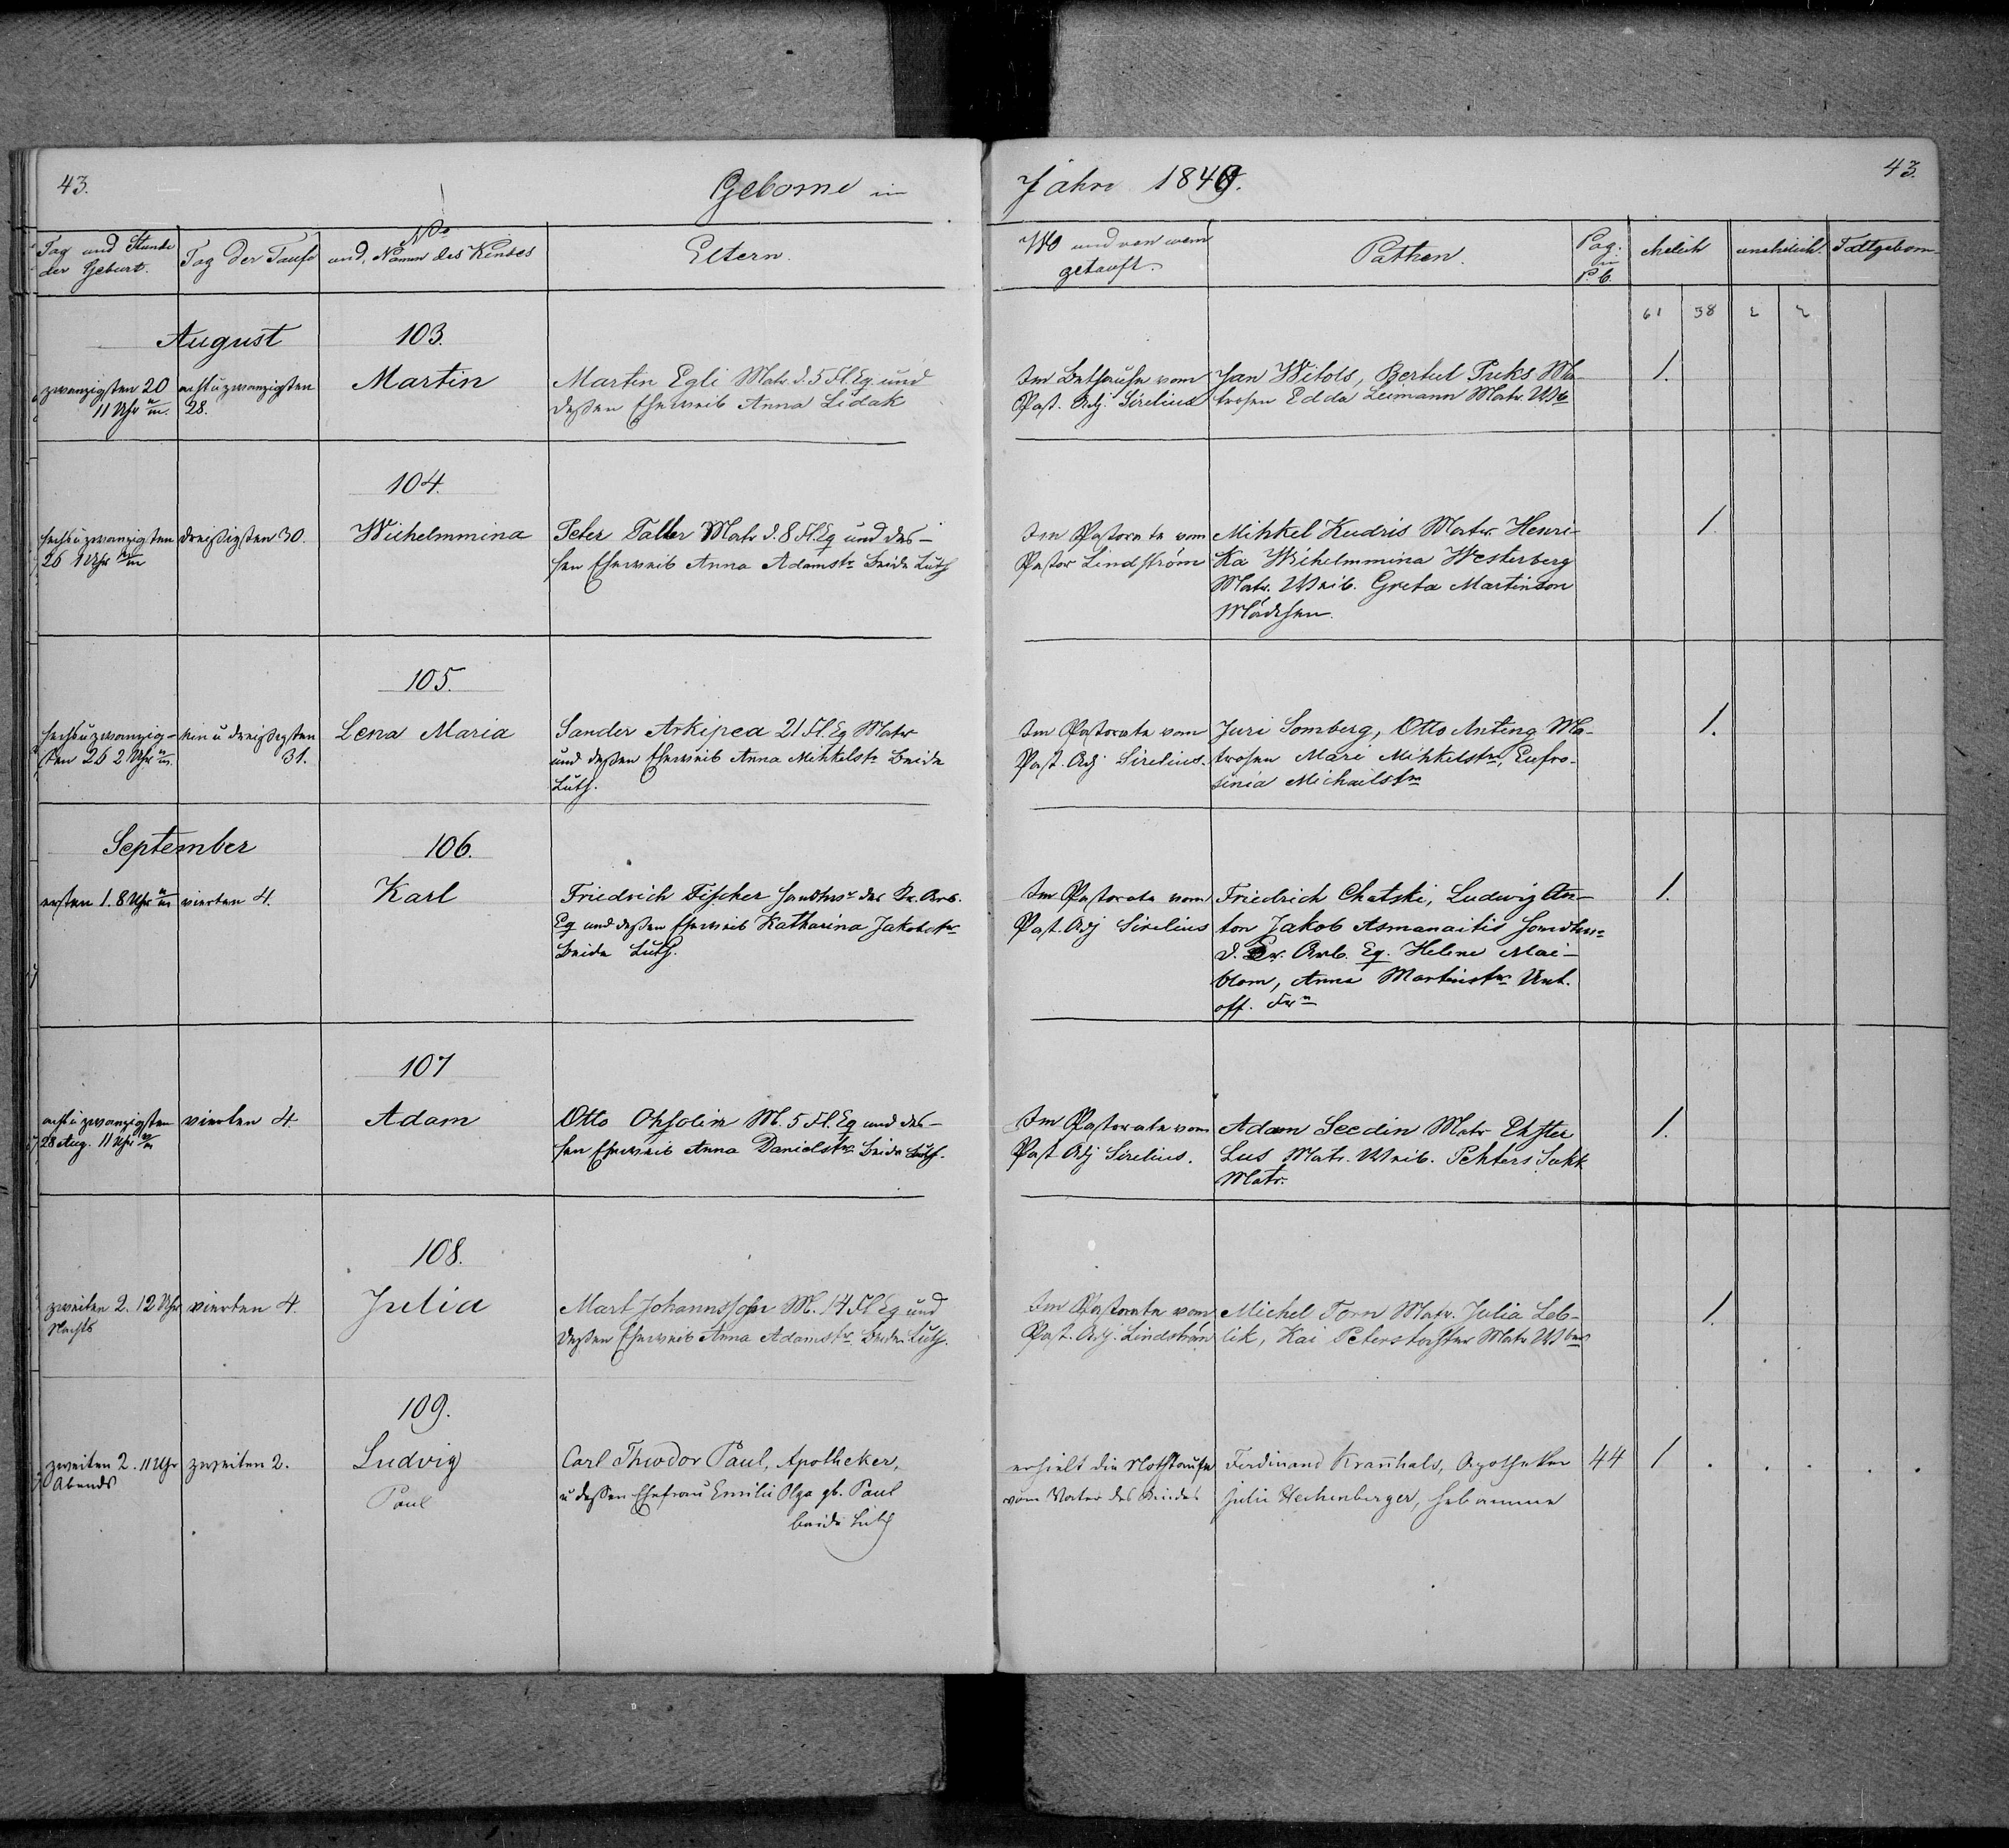 43.
Geborne in
Jahre 1849.
43.
Tag und Stunde der Geburt.
Tag der Taufe
No und Namen des Kindes
Eltern.
Wo und von wem getauft.
Pathen.
Pag: in P.b.
ehelich
unehelich.
Todtgeborn
61 38 2 2
August
103.
zwanzigsten 20
11 Uhr
acht u zwanzigsten
28.
Martin
Martin Egli Matr. d. 5 Fl. Eq. und
deßen Eheweib Anna Lidak
Im Bethause vom
Past. Adj. Sirelius
Jan Witols, Bertul Puks Ma-
trosen Edda Leimann Matr. Wb
1.
104.
sechs u zwanzigsten
26 1 Uhr
dreißigsten 30.
Wilhelmmina
Peter Taller Matr d. 8 Fl. Eq und des-
sen Eheweib Anna Adamstr beide Luth
Im Pastorate vom
Pastor Lindström
Mihkel Kudris Matr. Henri-
ka Wilhelmmina Westerberg
Matr. Weib. Greta Martinson
Mädchen.
1.
105.
sechs u zwanzig-
sten 26 2 Uhr
ein u dreißigsten
31.
Lena Maria
Sander Arkipea 21 Fl. Eq Matr
und deßen Eheweib Anna Mihkelstr beide
Luth.
Im Pastorate vom
Past. Adj Sirelius.
Juri Somberg, Otto Anting Ma-
trosen Mari Mihkelstr, Eufro-
sinia Michailstr
1.
September
106.
ersten 1. 8 Uhr
vierten 4.
Karl
Friedrich Fischer Handwr der Arb.
Eq und deßen Eheweib Katharina Jakobstr
beide Luth.
Im Pastorate vom
Past. Adj Sirelius
Friedrich Chatski, Ludwig An-
ton Jakob Asmanaitis Handwr
d. Arb. Eq. Helene Mai-
blom, Anna Martinstr Unt.
off. Frn
1.
107
acht u zwanzigsten
28 Aug. 11 Uhr
vierten 4.
Adam
Otto Ohsolin M. 5 Fl. Eq und des-
sen Eheweib Anna Danielstr beide Luth.
Im Pastorate vom
Past Adj Sirelius.
Adam Seedin Matr Ehster
Lus Matr. Weib. Pehters Sakk
Matr.
1.
108.
zweiten 2. 12 Uhr
Nachts
vierten 4.
Julia
Mart Johannssohn M. 14 Fl Eq und
deßen Eheweib Anna Adamstr. beide Luth.
Im Pastorate vom
Past. Adj. Lindström
Michel Torn Matr. Julia Leb-
lik, Kai Peterstochter Matr Wber
1.
109.
zweiten 2. 11 Uhr
Abends
zweiten 2.
Ludvig
Paul
Carl Theodor Paul, Apotheker,
u deßen Ehefrau Emilie Olga gb. Paul
beide Luth
erhielt die Nothtaufe
vom Vater des Kindes
Ferdinand Kranhals, Apotheker
Julie Hechenberger, Hebamme
44
1